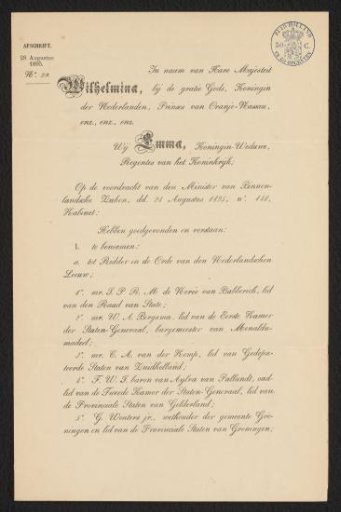 AFSCHRIFT.
28 Augustus
1895.
Nº. 28.
50 C.
In naam van Hare Majesteit
Wilhelmina, bij de gratie Gods, Koningin
der Nederlanden, Prinses van Oranje-Nassau,
enz., enz., enz.
Wij Emma, Koningin-Weduwe,
Regentes van het Koninkrijk;
Op de voordracht van den Minister van Binnen-
landsche Zaken, dd. 21 Augustus 1895, nº. 188,
Kabinet;
Hebben goedgevonden en verstaan:
I. te benoemen:
a. tot Ridder in de Orde van den Nederlandschen
Leeuw;
1º. mr. J. P. R. M. de Nerée van Babberich, lid
van den Raad van State;
2º. mr. W. A. Bergsma, lid van de Eerste Kamer
der Staten-Generaal, burgemeester van
3º. mr. C. A. van der Kemp, lid van Gedepu-
teerde Staten van Zuidholland;
4º. F. W. J. baron van Aylva van Pallandt, oud-
lid van de Tweede Kamer der Staten-Generaal, lid van
de Provinciale Staten van Gelderland;
5º. G. Wouters jr., wethouder der gemeente Gro-
ningen en lid van de Provinciale Staten van Groningen;